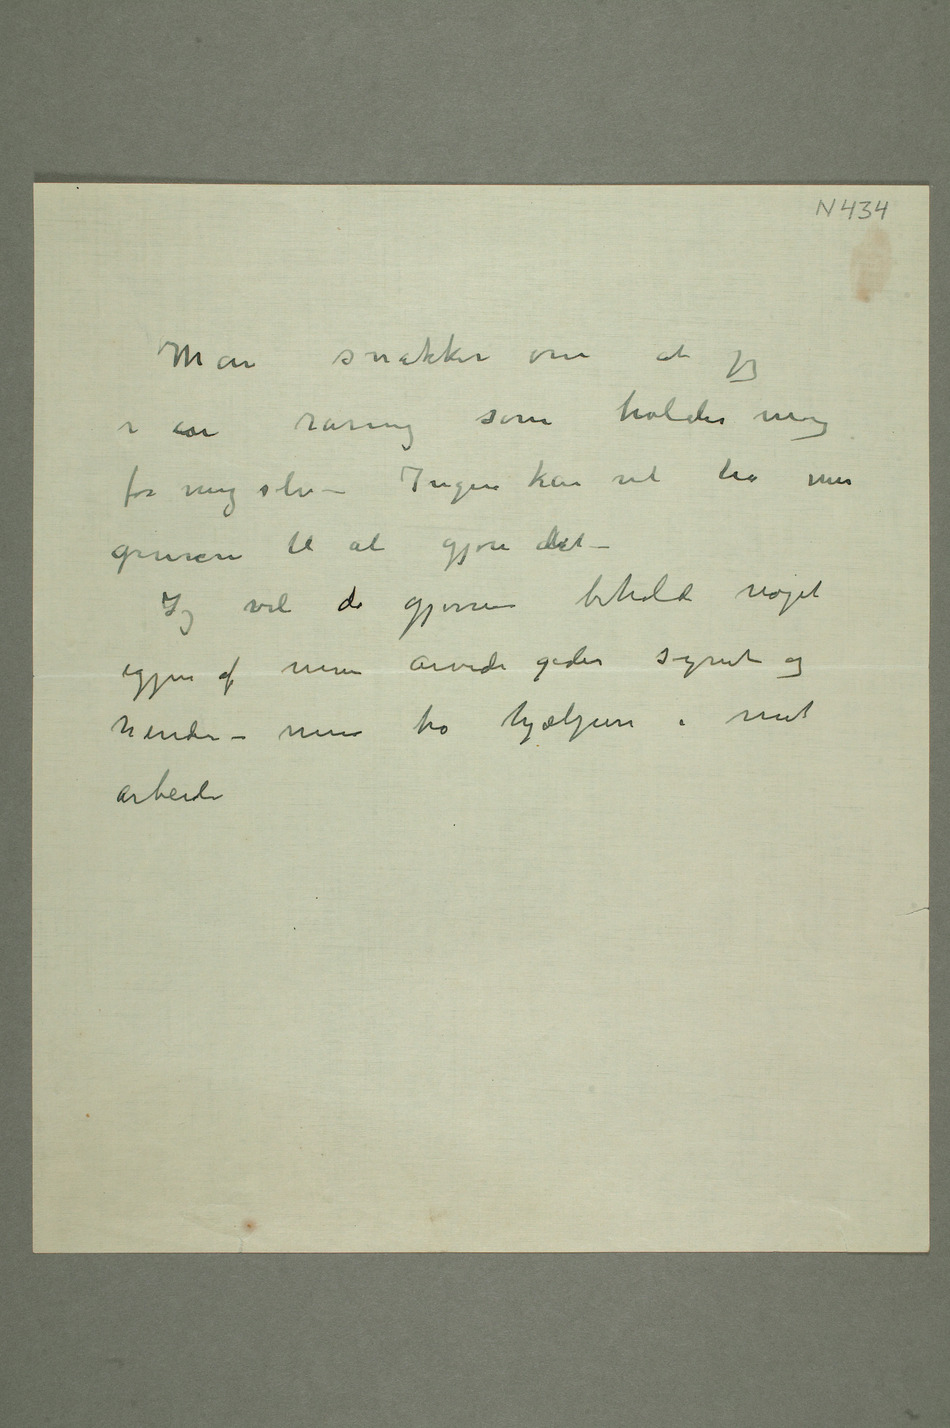 N 434
Man snakker om at jeg
er en raring som holder mig
for mig selv – Ingen kan vel ha mer
grunn til at gjøre det –
Jeg vil da gjerne beholde noget
igjen af mine arvede goder synet og
hender – mine to hjælpere i mit
arbeide